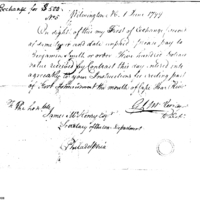 Exchange for $500.
No. 5 Wilmington N.C. 1 June 1799
At sight of this my First of Exchange, second
of same tenor and date unpaid, please pay to
Benjamin Smith or order Five hundred dollars
value received by Contract this day entered into
agreeably to your Instructions for erecting part
of Fort Johnston at the mouth of Cape Fear River
To The Honble
James McHenry Esqr
Secretary of the War Department
Philadelphia